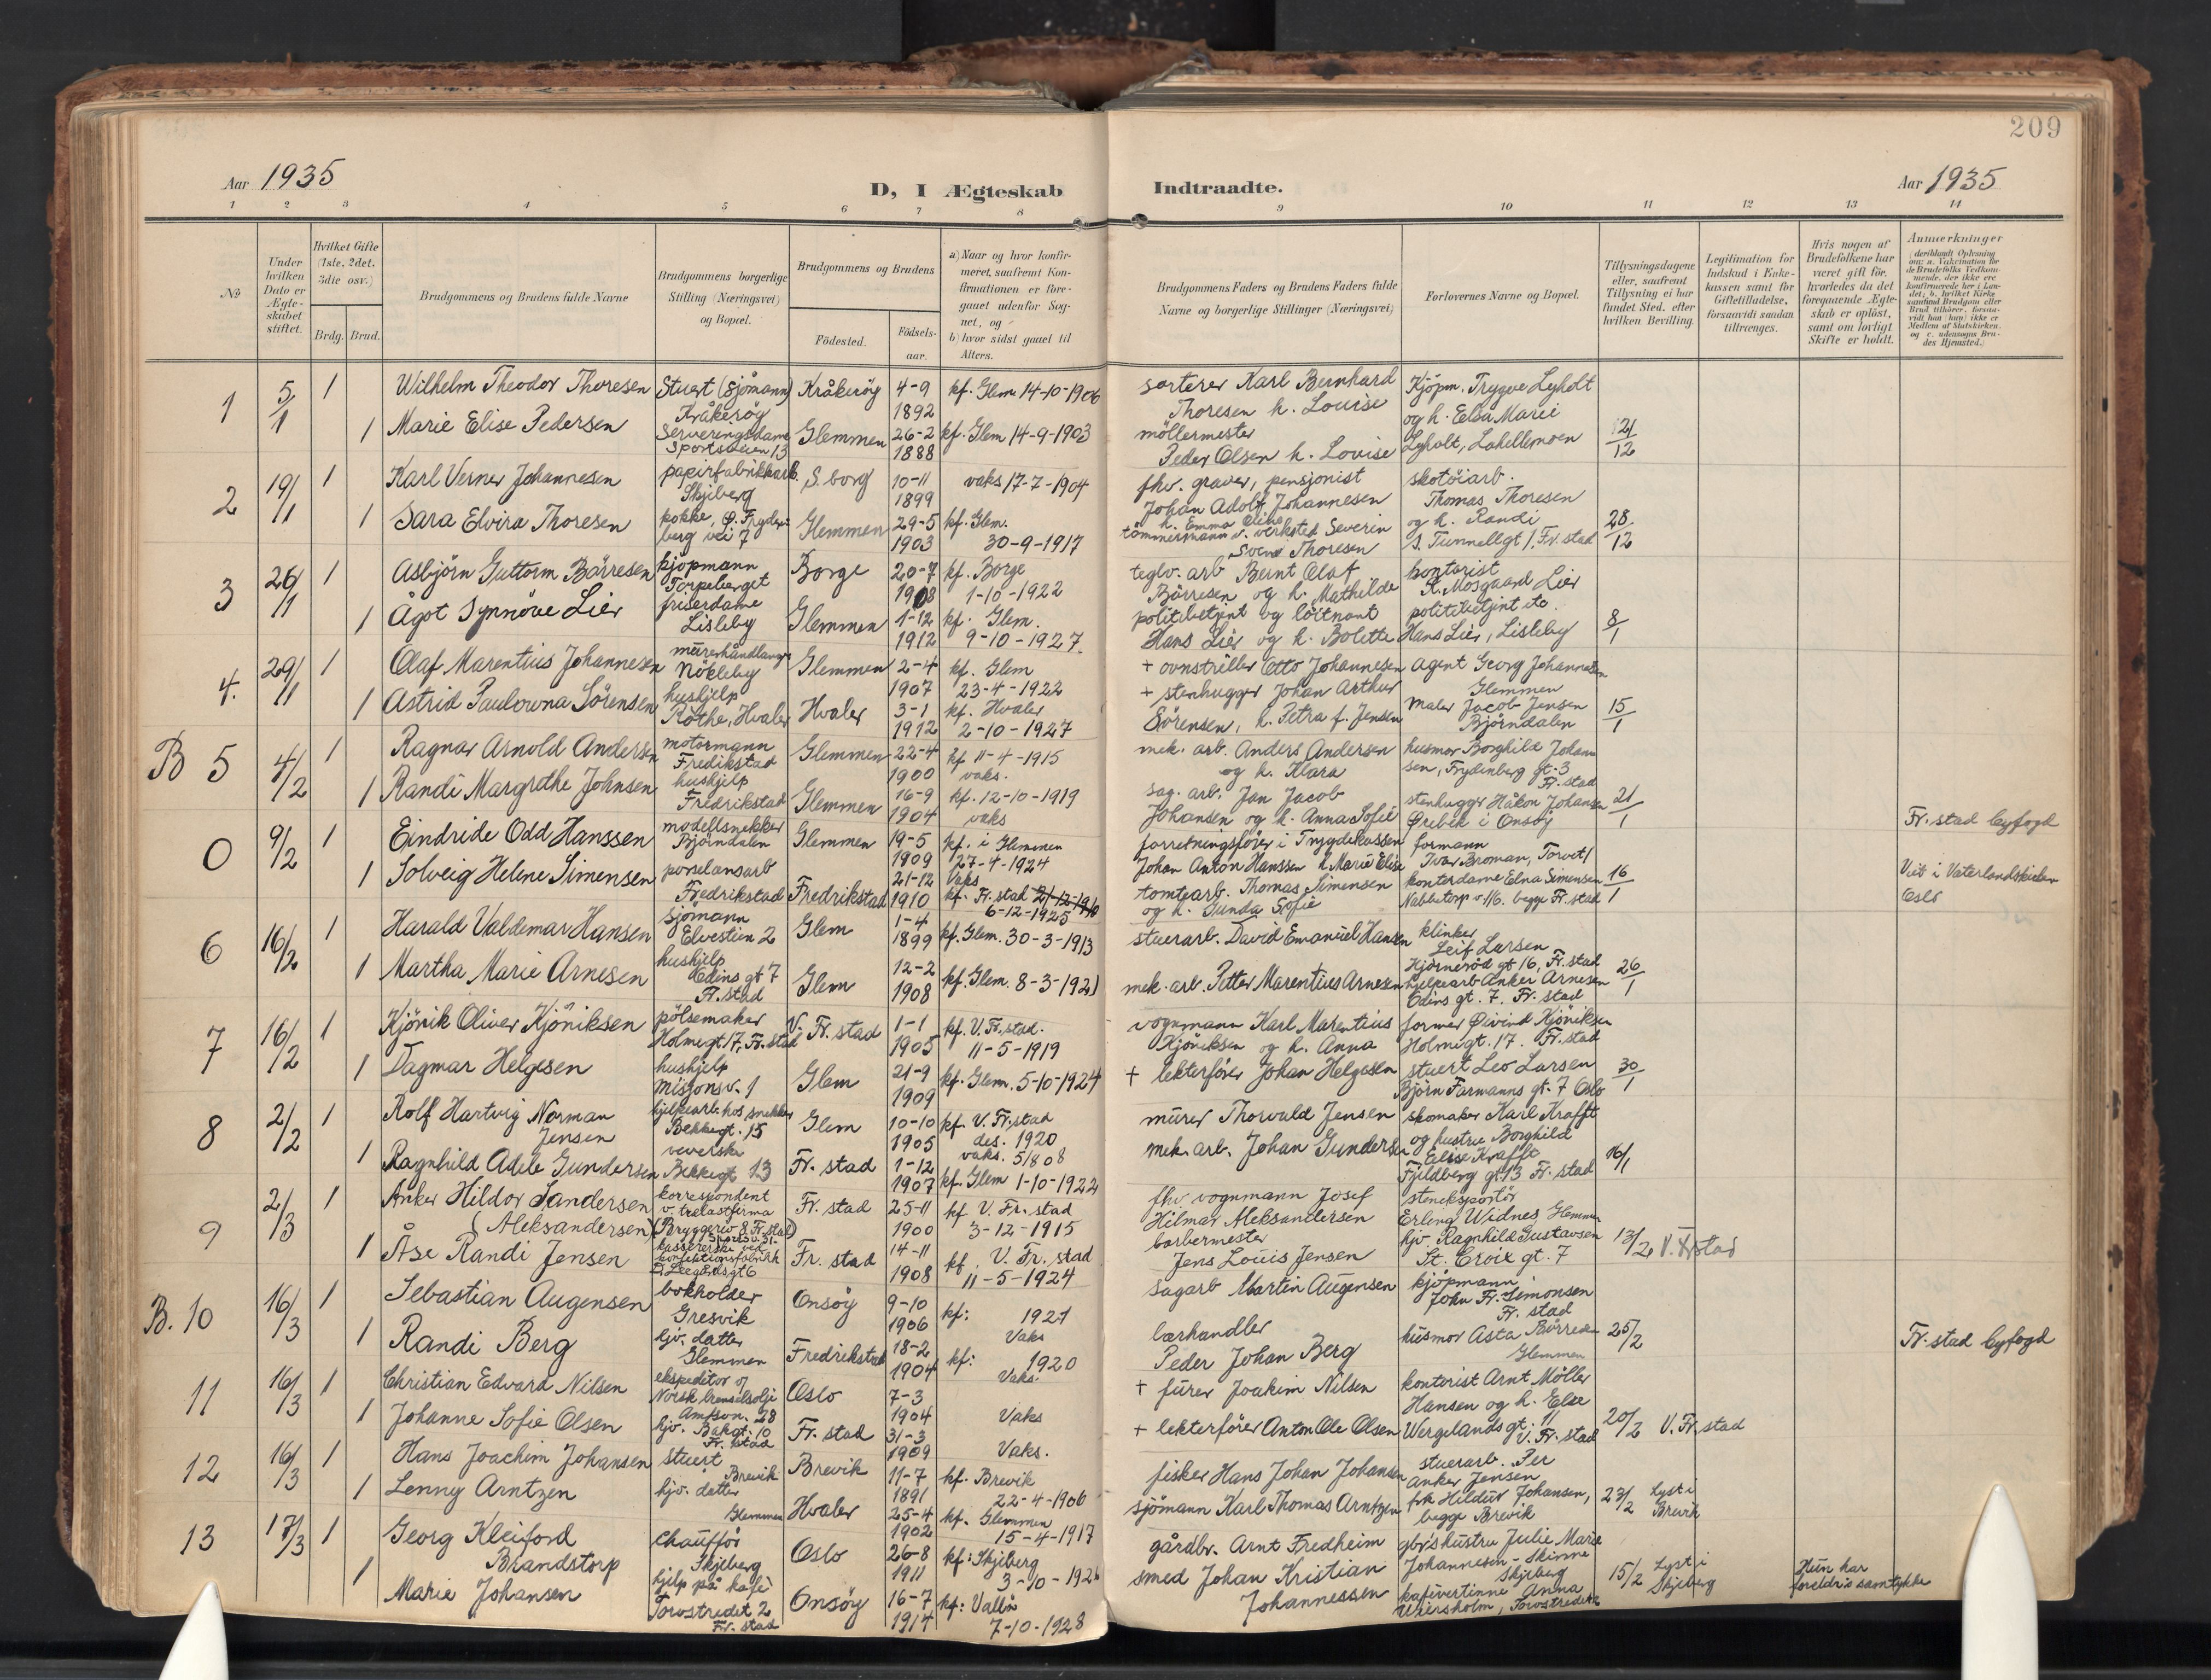 209
Aar 1935
D, I Ægteskab Indtraadte.
Aar 1935
1 2 3 4 5 6 7 8 9 10 11 12 13 14
№
Under hvilken Dato er Ægteskabet stiftet.
Hvilket Gifte (1ste, 2det, 3die osv.)
Brdg. Brud.
Brudgommens og Brudens fulde Navne
Brudgommens borgerlige Stilling (Næringsvei) og Bopæl.
Brudgommens og Brudens
Födested.
Födsels-aar.
a) Naar og hvor konfirmeret, saafremt Konfirmationen er foregaaet udenfor Sognet, og
b) hvor sidst gaaet til Alters.
Brudgommens Faders og Brudens Faders fulde Navne og borgerlige Stillinger (Næringsvei)
Forlovernes Navne og Bopæl.
Tillysningsdagene eller, saafremt Tillysning ei har fundet Sted, efter hvilken Bevilling.
Legitimation for Indskud i Enkekassen samt for Giftetilladelse, forsaavidt saadan tiltrænges.
Hvis nogen af Brudefolkene har været gift för, hvorledes da det foregaaende Ægteskab er oplöst, samt om lovligt Skifte er holdt.
Anmerkninger
1 5/1 1 Wilhelm Theodor Thoresen Stuert (Sjömann) Kråkeröy Kråkeröy 4-9 1892 kf. Glem 14-10-1906 sorterer Karl Bernhard Thoresen h. Louise Kjöpm. Trygve Lyholt og h. Elsa Marie
1 Marie Elise Pedersen Serveringsdame Sportsveien 13 Glemmen 26-2 1888 kf. Glem 14-9-1903 möllermester Peder Olsen h. Lovise Lyholt, Lahellemoen 21/12
2 19/1 1 Karl Verner Johannesen papirfabrikkarb. Skjeberg S.borg 10-11 1899 vaks 17-7-1904 fhv. graver, pensjonist Johan Adolf Johannesen h. Emma Oline skotöiarb. Thomas Thoresen
1 Sara Elvira Thoresen kokke, Ø. Frydenberg vei 7 Glemmen 29-5 1903 kf. Glem. 30-9-1917 tömmermann v. verksted Severin Sven Thoresen og h. Randi S. Tunnellgt 1, Fr.stad 28/12
3 26/1 1 Asbjörn Guttorm Börresen kjöpmann Torpeberget Borge 20-7 1908 kf. Borge 1-10-1922 teglv. arb Bernt Olaf Börresen og h. Mathilde kontorist K. Mosgaard Lier
1 Ågot Synnöve Lier friserdame Lisleby Glemmen 1-12 1912 kf. Glem. 9-10-1927. politibetjent og löitnant Hans Lier og h. Bolette politibetjent Hans Lier, Lisleby 8/1
4. 29/1 1 Olaf Marentius Johannesen murerhåndlanger Nökleby Glemmen 2-4 1907 kf. Glem 23-4-1922 + ovnstiller Otto Johannesen Agent Georg Johannesen Glemmen
1 Astrid Paulowna Sörensen hushjelp Röthe, Hvaler Hvaler 3-1 1912 kf. Hvaler 2-10-1927 + stenhugger Johan Arthur Sörensen, h. Petra f. Jensen Maler Jacob Jensen Bjørndalen 15/1
B 5 4/2 1 Ragnar Arnold Andersen motormann Fredikstad Glemmen 22-4 1900 kf 11-4-1915 vaks. mek. arb. Anders Andersen og h. Klara husmor Borghild Johansen, Frydenberg gt. 3 Fr.stad
1 Randi Margrethe Johnsen hushjelp Fredrikstad Glemmen 16-9 1904 kf. 12-10-1919 vaks sag. arb. Jan Jacob Johansen og h. Anna Sofie stenhugger Håkon Johansen Ørebek i Onsöy 21/1
0 9/2 1 Eindride Odd Hanssen modellsnekker Bjørndalen Glemmen 19-5 1909 kf. i Glemmen 27-4-1924 Vaks forretningsförer i Trygdekassen Johan Anton Hanssen h. Marie Elise formann Ivar Broman, Torvet 1 Fr.stad byfogd
1 Solveig Helene Simensen porselansarb Fredrikstad Fredrikstad 21-12 1910 kf. Fr.stad 21-12-1910 6-12-1925 tomtearb. Thomas Simensen og h. Gunda Sofie kontordame Elna Simensen Nabbetorp v. 116. begge Fr.stad 16/1 Viet i Vaterlandskirken Oslo
6 16/2 1 Harald Valdemar Hansen sjömann Elvestien 2 Glem 1-4 1899 kf. Glem. 30-3-1913 stuerarb. David Emanuel Hansen klinker Leif Larsen Hjörneröd gt 16, Fr.stad
1 Martha Marie Arnesen hushjelp Odins gt 7 Fr.stad Glem 12-2 1908 kf. Glem. 8-3-1921 mek. arb. Petter Marentius Arnesen hjelpearb Anker Arnesen Odins gt. 7. Fr. stad 26/1
7 16/2 1 Kjönik Oliver Kjöniksen pölsemaker Holmegt 17, Fr.stad V. Fr. stad 1-1 1905 kf. V. Fr.stad. 11-5-1919 vognmann Karl Marentius Kjöniksen og h. Anna former Øivind Kjöniksen Holmegt. 17. Fr.stad
1 Dagmar Helgesen hushjelp Misjonsv. 1 Glem 21-9 1909 kf. Glem. 5-10-1924 + lekterförer Johan Helgesen stuert Leo Larsen Björn Farmanns gt. 7 Oslo 30/1
8 2/2 1 Rolf Hartvig Norman Jensen hjelpearb. hos snekker Bekkegt. 15 Glem 10-10 1905 kf. V. Fr.stad des. 1920 vaks. 5/8 08 murer Thorvald Jensen skomaker Karl Krafft og hustru Borghild Elise Krafft
1 Ragnhild Adele Gundersen veverske Bekkegt 13 Fr. stad 1-12 1907 kf. Glem 1-10-1922 mek. arb. Johan Gundersen Fjeldberg gt. 13 Fr. stad 16/1
9 2/3 1 Anker Hildor Sandersen (Aleksandersen) korrespondent v. trelastfirma Bryggeriv 8 Fr.stad Fr. stad 25-11 1900 kf V. Fr. stad 3-12-1915 fhv vognmann Josef Hilmar Aleksandersen steneksportör Erling Widnes Glemmen
1 Åse Randi Jensen kassererske ved konfeksjonsfabrikk Fr. stad 14-11 1908 kf. V. Fr. stad 11-5-1924 barbermester Jens Louis Jensen hjv. Ragnhild Gustavsen St. Croix gt. 7 13/2 V. Fr.stad
B. 10 16/3 1 Sebastian Augensen bokholder Gresvik Onsöy 9-10 1906 kf: 1921 Vaks sagarb Martin Augensen kjöpmann John Fr. Simonsen Fr. stad
1 Randi Berg hjv. datter Glemmen Fredrikstad 18-2 1904 kf: 1920 Vaks. lærhandler Peder Johan Berg husmor Asta Börresen Glemmen 25/2 Fr. stad byfogd
11 16/3 1 Christian Edvard Nilsen ekspeditör v/ Norsk brenselsolje Amtson. 28 Oslo 7-3 1904 Vaks + fürer Joakim Nilsen kontorist Arnt Möller Hansen og h. Else
1 Johanne Sofie Olsen hjv. Bakgt. 10 Fr. stad Fr. stad 31-3 1909 Vaks. + lekterförer Anton Ole Olsen Wergelandsgt. 11 V. Fr. stad 20/2 V. Fr.stad
12 16/3 1 Hans Joachim Johansen stuert Brevik Brevik 11-7 1891 kf. Brevik 22-4-1906 fisker Hans Johan Johansen stuerarb. Per Anker Jensen
1 Lenny Arntzen hjv. datter Glemmen Hvaler 25-4 1902 kf. Glemmen 15-4-1917 sjömann Karl Thomas Arntzen frk Hildur Johansen, begge Brevik 23/2 Lyst i Brevik
13 17/3 1 Georg Kleiford Brandstorp Chauffør Skjeberg Oslo 26-8 1911 kf: Skjeberg 3-10-1926 gårdbr. Arnt Fredheim gbr's hustru Julie Marie Johannesen - Skinne Skjeberg
1 Marie Johansen hjelp på kafé Torvstredet 2 Fr. stad Onsöy 16-7 1914 kf: Vallö 7-10-1928 smed Johan Kristian Johannessen kafévertinne Anna Torvstredet 2 15/2 Lyst i Skjeberg Hun har foreldres samtykke